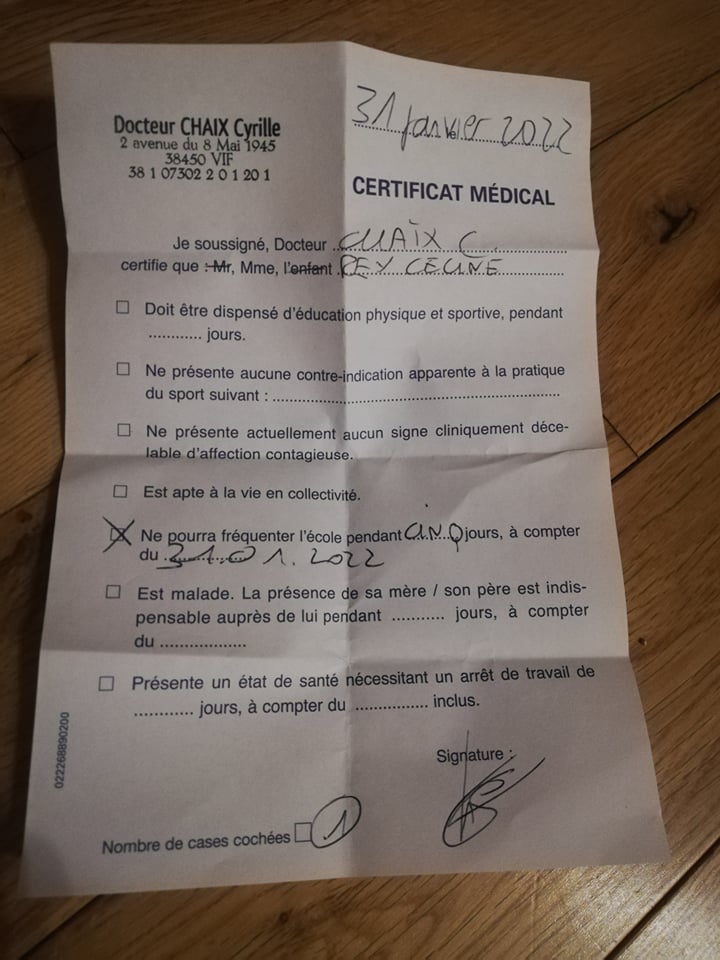 Docteur CHAIX Cyrille
2 avenue du 8 Mai 1945
38450 VIF
38 1 07302 2 0 1 20 1
31 janvier 2022
CERTIFICAT MÉDICAL
Je soussigné, Docteur CHAIX C.
certifie que : Mr, Mme, l'enfant REY CELINE
☐ Doit être dispensé d'éducation physique et sportive, pendant
............ jours.
☐ Ne présente aucune contre-indication apparente à la pratique
du sport suivant : ................................................................
☐ Ne présente actuellement aucun signe cliniquement déce-
lable d'affection contagieuse.
☐ Est apte à la vie en collectivité.
☒ Ne pourra fréquenter l'école pendant CINQ jours, à compter
du 31.01.2022
☐ Est malade. La présence de sa mère / son père est indis-
pensable auprès de lui pendant ........... jours, à compter
du ..................
☐ Présente un état de santé nécessitant un arrêt de travail de
............ jours, à compter du ............... inclus.
Signature :
022268890200
Nombre de cases cochées ☐ 1